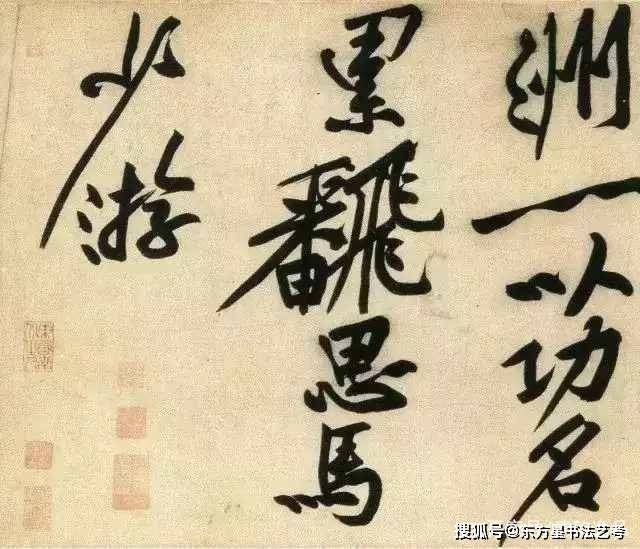 洲一以功名
累飜思馬
少游
搜狐号@东方星书法艺考